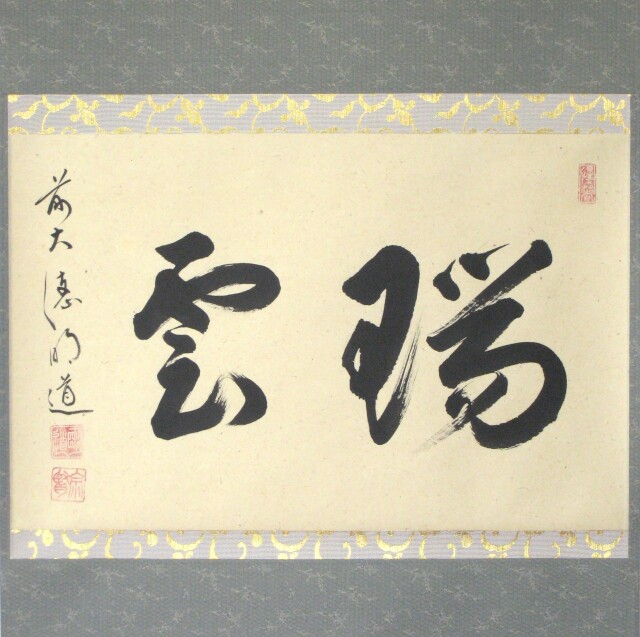 瑞雲
前大徳明道